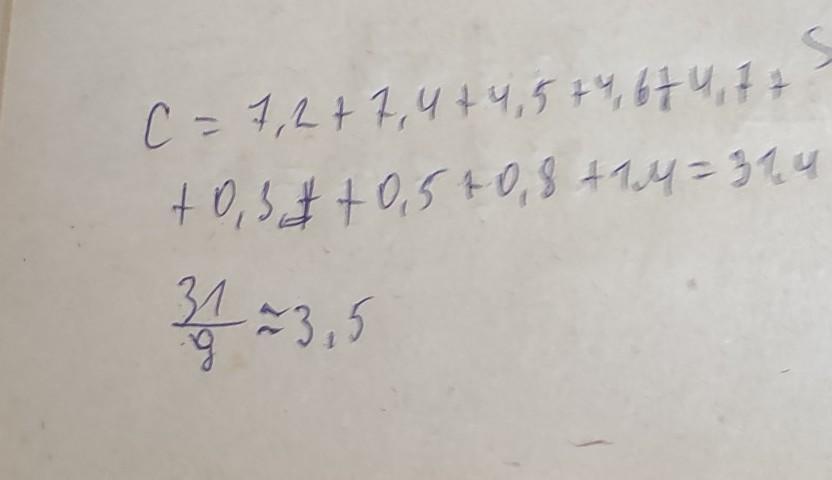 C = 7,2 + 7,4 + 4,5 + 4,6 + 4,7 +
+ 0,3 + 0,5 + 0,8 + 1,4 = 31,4
31/9 ≈ 3,5